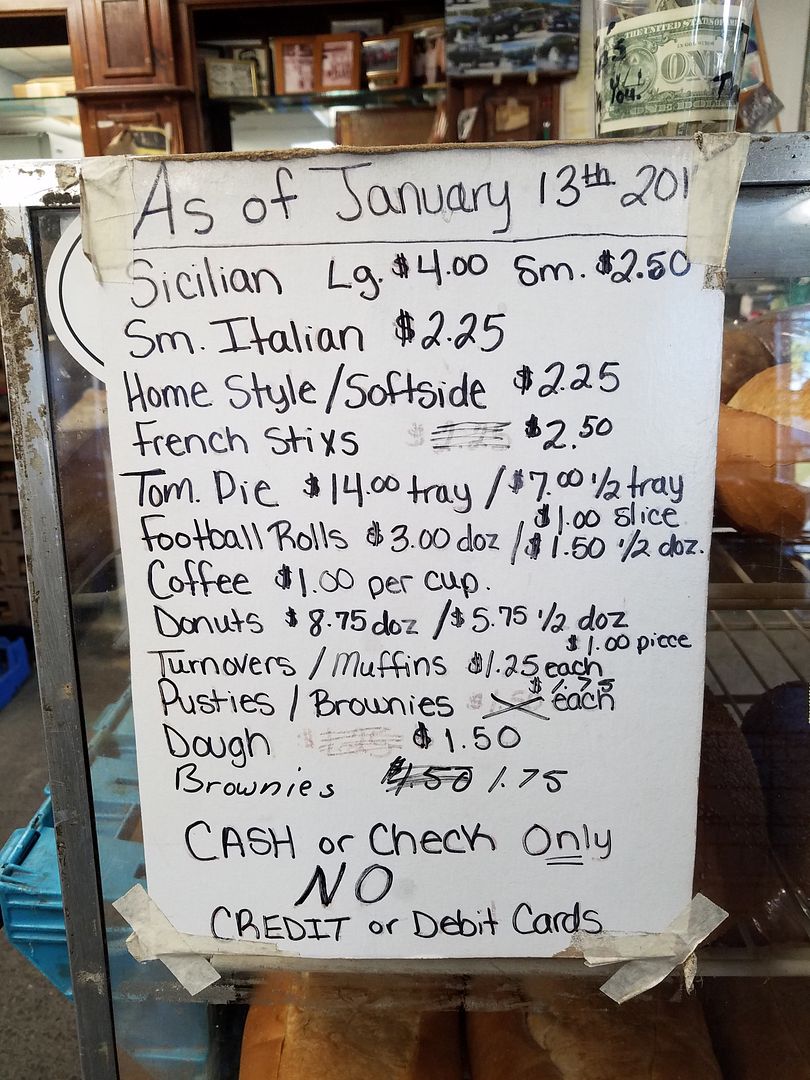 THE UNITED STATES OF
ONE
You!
As of January 13th 201
Sicilian Lg. $4.00 Sm. $2.50
Sm. Italian $2.25
Home Style/Softside $2.25
French Stixs $2.50
Tom. Pie $14.00 tray / $7.00 1/2 tray
$1.00 slice
Football Rolls $3.00 doz / $1.50 1/2 doz.
Coffee $1.00 per cup.
Donuts $8.75 doz / $5.75 1/2 doz
$1.00 piece
Turnovers / Muffins $1.25 each
Pusties / Brownies $1.75 each
Dough $1.50
Brownies $1.50 1.75
CASH or Check Only
NO
CREDIT or Debit Cards